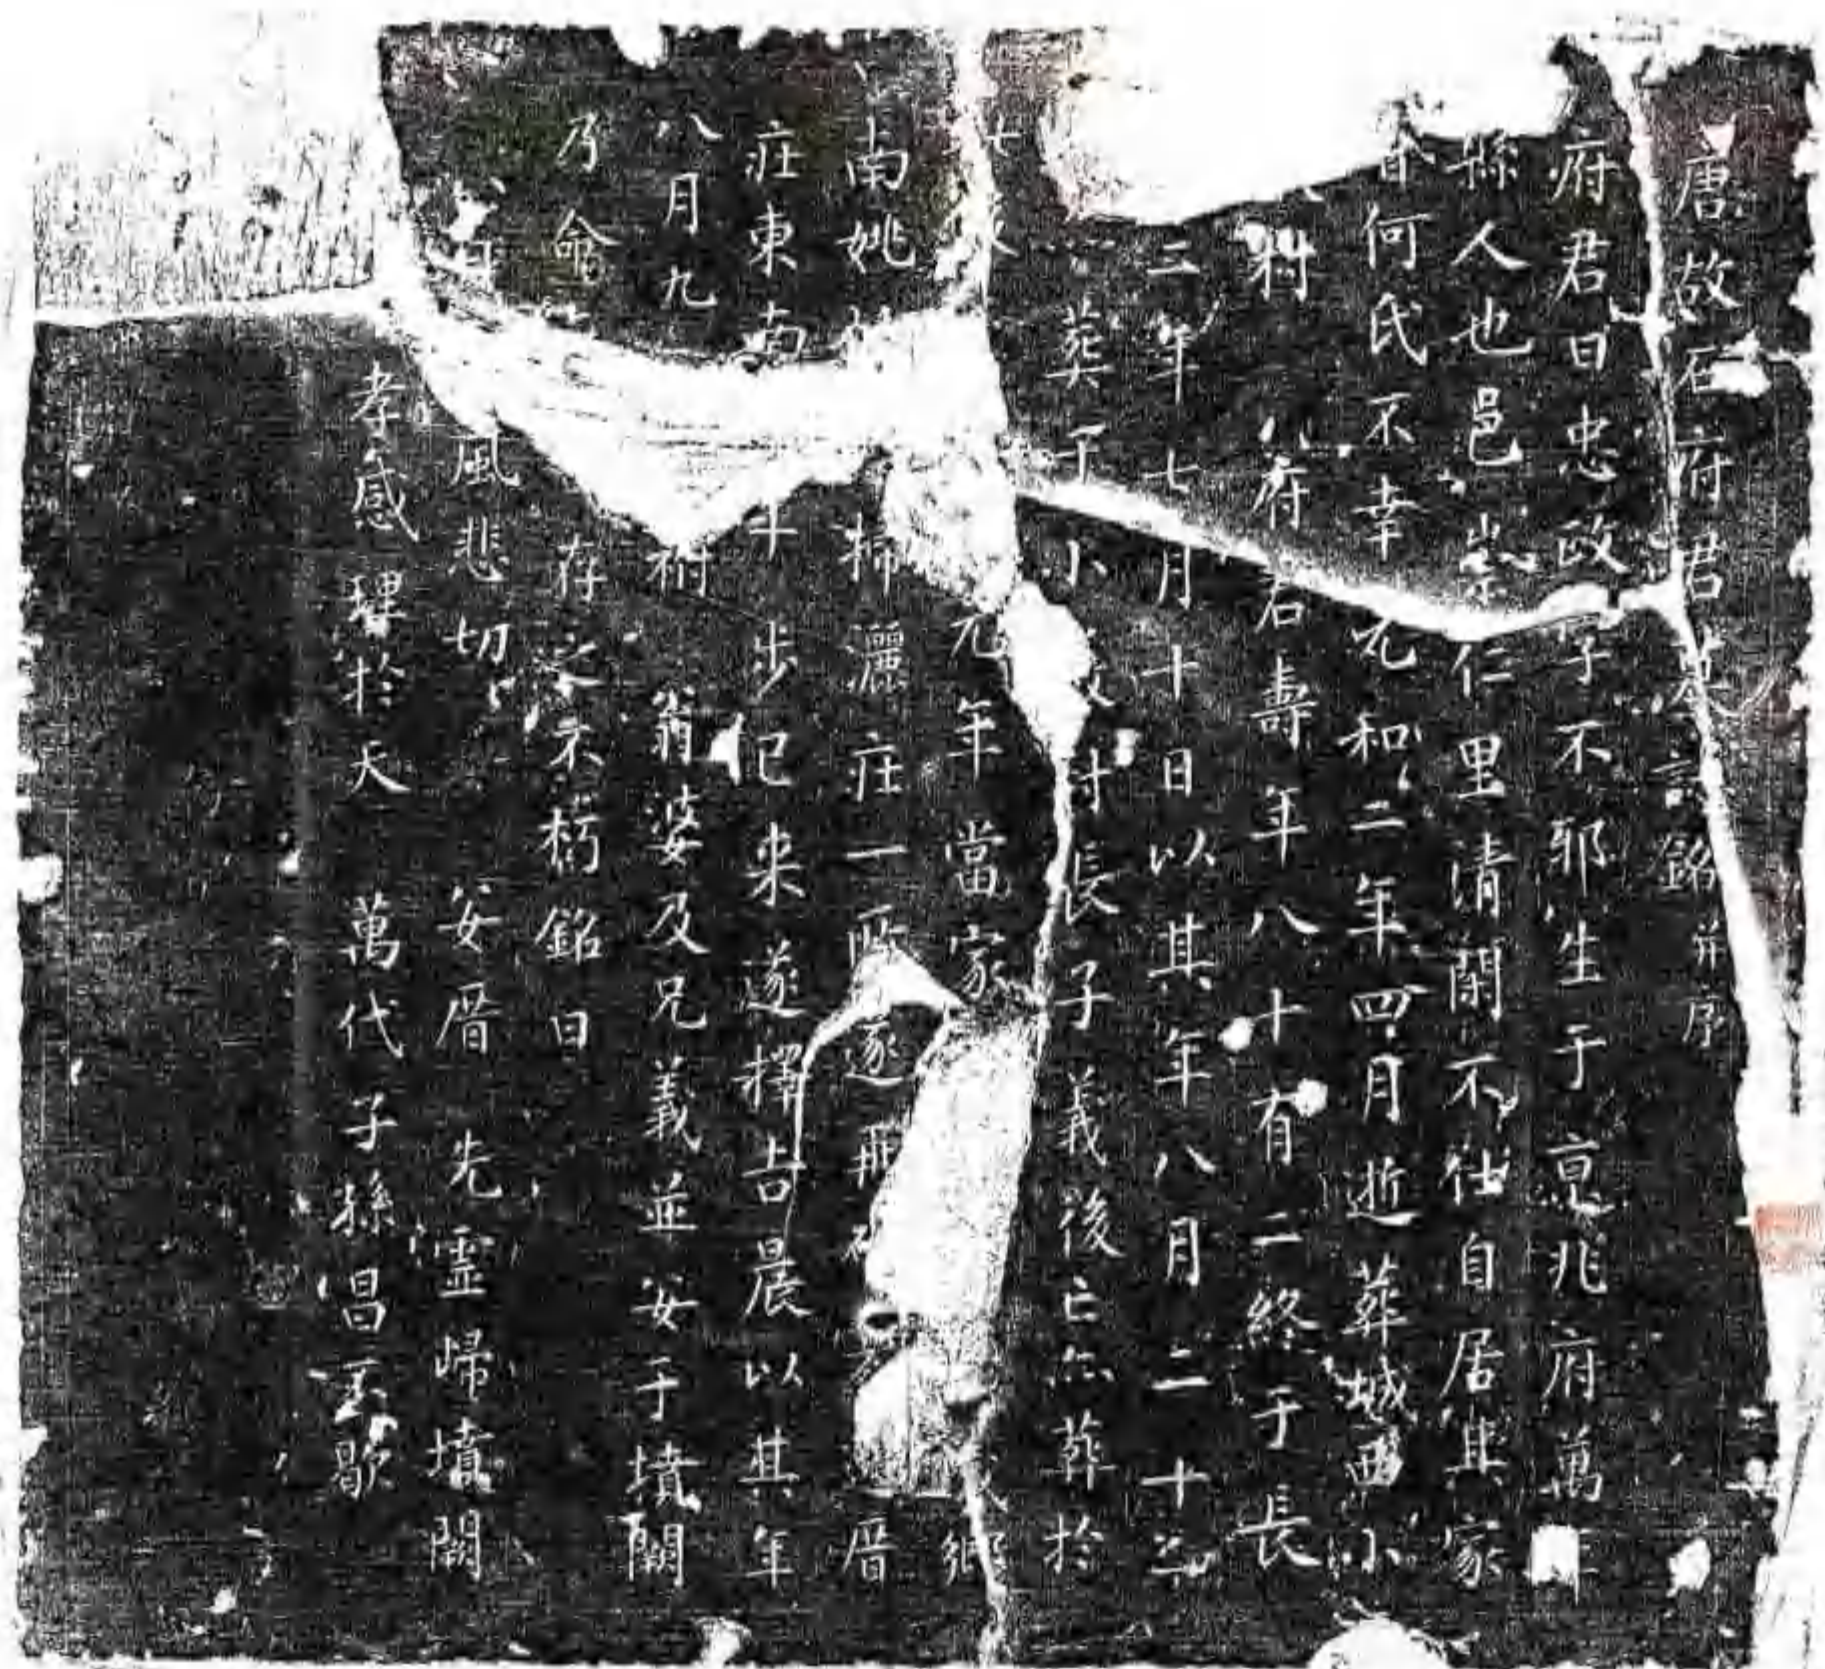 唐故石府君墓誌銘并序
府君曰忠政字不邪生于亰兆府萬年
縣人也邑崇仁里清閑不仕自居其家
何氏不幸元和二年四月逝葬城西小
村府君壽年八十有二終于長
二年七月十日以其年八月二十
葬于小村長子義後亡亦葬於
元年當家鄉
南姚掃灑庄一所遂再厝
庄東南步已来遂擇吉晨以其年
八月九祔翁婆及兄義並安于墳闕
乃命存之不朽銘曰
日風悲切安厝先霊歸墳闕
孝感理於天萬代子孫昌不歇